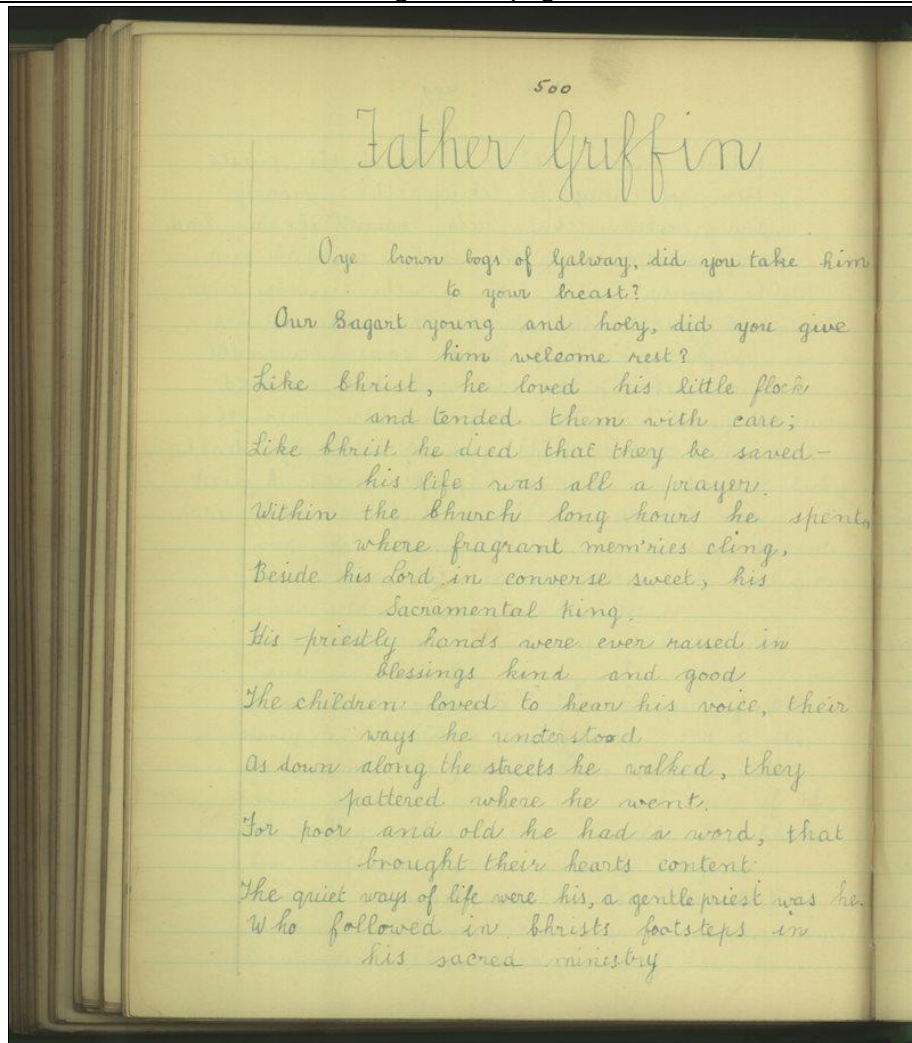 500
Father Griffin
Oye brown bogs of Galway, did you take him
to your breast?
Our Sagart young and holy, did you give
him welcome rest?
Like Christ, he loved his little flock
and tended them with care;
Like Christ he died that they be saved –
his life was all a prayer.
Within the Church long hours he spent,
where fragrant mem'ries cling,
Beside his Lord in converse sweet, his
Sacramental King.
His priestly hands were ever raised in
blessings kind and good
The children loved to hear his voice, their
ways he understood
As down along the streets he walked, they
pattered where he went.
For poor and old he had a word, that
brought their hearts content
The quiet ways of life were his, a gentle priest was he.
Who followed in Christs footsteps in
his sacred ministry